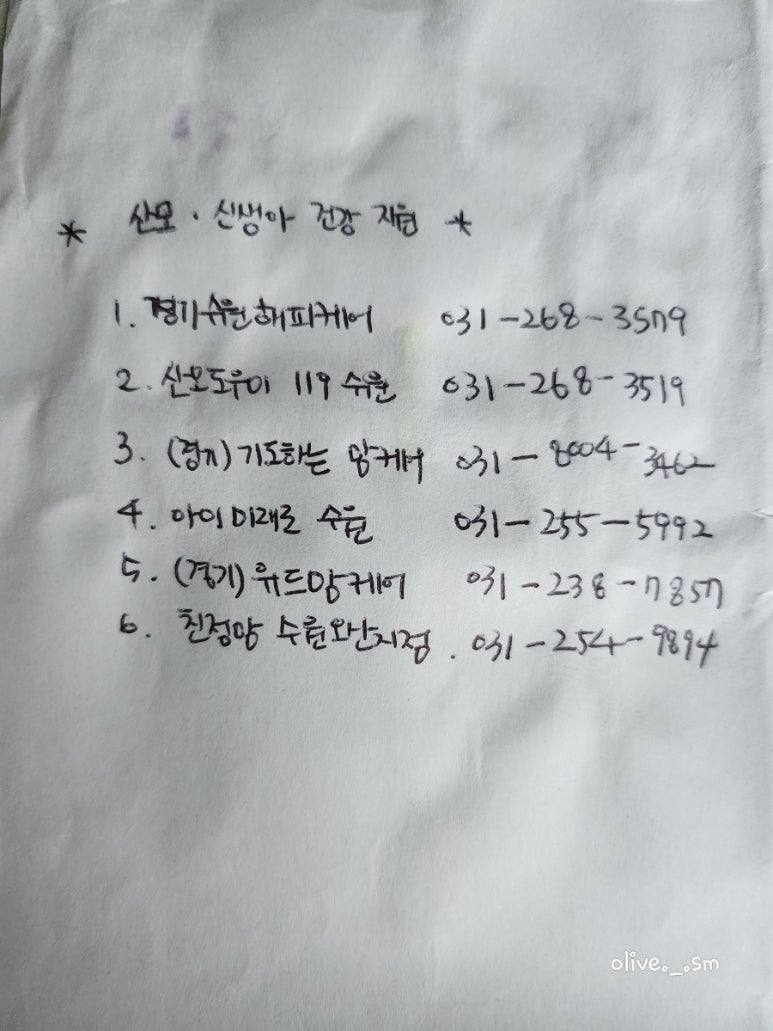 * 산모 · 신생아 건강 지원 *
1. 경기수원해피케어 031-268-3579
2. 산모도우미 119 수원 031-268-3519
3. (경기) 기도하는 맘케어 031-8004-3462
4. 아이미래로 수원 031-255-5992
5. (경기) 위드맘케어 031-238-7857
6. 친정맘 수원오산지점. 031-254-9894
olive._.sm